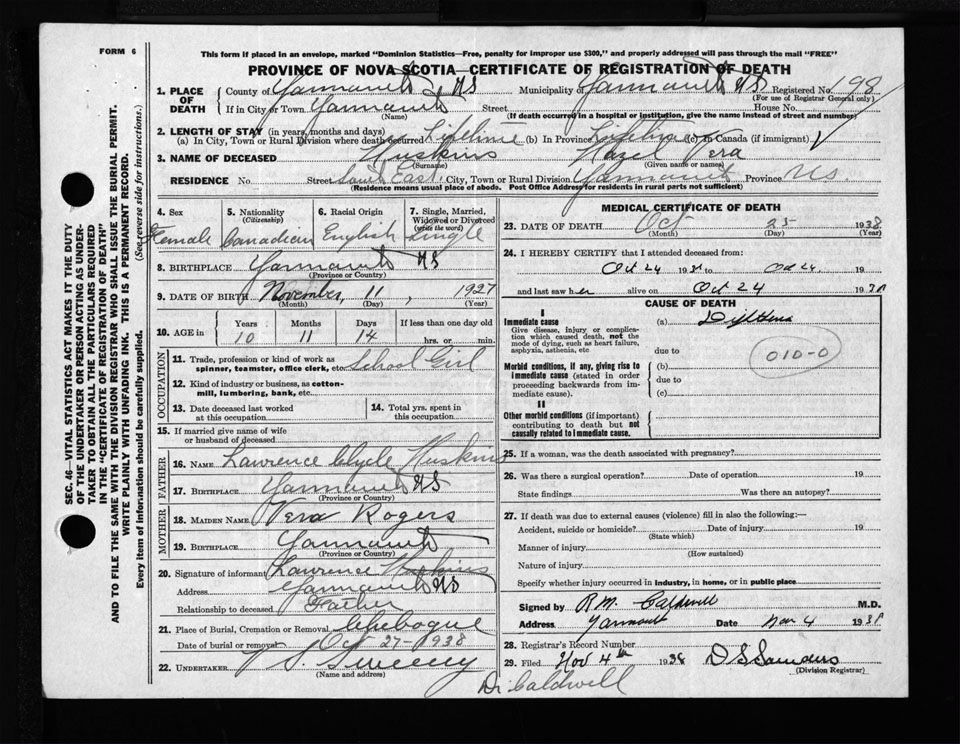 FORM 6
This form if placed in an envelope, marked "Dominion Statistics—Free, penalty for improper use $300," and properly addressed will pass through the mail "FREE"
PROVINCE OF NOVA SCOTIA—CERTIFICATE OF REGISTRATION OF DEATH
1. PLACE OF DEATH County of Yarmouth NS Municipality of Yarmouth NS Registered No. 198
(For use of Registrar General only)
If in City or Town Yarmouth Street House No.
(If death occurred in a hospital or institution, give the name instead of street and number)
2. LENGTH OF STAY (in years, months and days)
(a) In City, Town or Rural Division where death occurred Lifetime (b) In Province Lifetime (c) In Canada (if immigrant)
3. NAME OF DECEASED Huskins Hazel Vera
(Surname) (Given name or names)
RESIDENCE No. Street South East City, Town or Rural Division Yarmouth Province N.S.
(Residence means usual place of abode. Post Office Address for residents in rural parts not sufficient)
4. Sex 5. Nationality (Citizenship) 6. Racial Origin 7. Single, Married, Widowed or Divorced (write the word)
Female Canadian English Single
8. BIRTHPLACE Yarmouth NS
(Province or Country)
9. DATE OF BIRTH November, 11, 1927
(Month) (Day) (Year)
10. AGE in Years Months Days If less than one day old
10 11 14 hrs. or min.
OCCUPATION
11. Trade, profession or kind of work as spinner, teamster, office clerk, etc School Girl
12. Kind of industry or business, as cotton-mill, lumbering, bank, etc.
13. Date deceased last worked at this occupation
14. Total yrs. spent in this occupation
15. If married give name of wife or husband of deceased
FATHER
16. NAME Lawrence Clyde Huskins
17. BIRTHPLACE Yarmouth NS
(Province or Country)
MOTHER
18. MAIDEN NAME Vera Rogers
19. BIRTHPLACE Yarmouth
(Province or Country)
20. Signature of informant Lawrence Huskins
Address Yarmouth NS
Relationship to deceased Father
21. Place of Burial, Cremation or Removal Chebogue
Date of burial or removal Oct 27-1938
22. UNDERTAKER Sweeny
(Name and address)
MEDICAL CERTIFICATE OF DEATH
23. DATE OF DEATH Oct 25 1938
(Month) (Day) (Year)
24. I HEREBY CERTIFY that I attended deceased from:
Oct 24 1938 to Oct 24 19
and last saw her alive on Oct 24 1938
CAUSE OF DEATH
I
Immediate cause
Give disease, injury or complication which caused death, not the mode of dying, such as heart failure, asphyxia, asthenia, etc
(a)
due to
010-0
Morbid conditions, if any, giving rise to immediate cause (stated in order proceeding backwards from immediate cause).
(b)
due to
(c)
II
Other morbid conditions (if important) contributing to death but not causally related to immediate cause.
25. If a woman, was the death associated with pregnancy?
26. Was there a surgical operation? Date of operation 19
State findings Was there an autopsy?
27. If death was due to external causes (violence) fill in also the following:—
Accident, suicide or homicide? Date of injury 19
(State which)
Manner of injury
(How sustained)
Nature of injury
Specify whether injury occurred in industry, in home, or in public place
Signed by R M. Caldwell M.D.
Address Yarmouth Date Nov 4 1938
28. Registrar's Record Number
29. Filed Nov 4th 1938 D S Saunders
(Division Registrar)
Dr Caldwell
SEC. 46—VITAL STATISTICS ACT MAKES IT THE DUTY OF THE UNDERTAKER OR PERSON ACTING AS UNDERTAKER TO OBTAIN ALL THE PARTICULARS REQUIRED IN THE "CERTIFICATE OF REGISTRATION OF DEATH" AND TO FILE THE SAME WITH THE DIVISION REGISTRAR WHO SHALL ISSUE THE BURIAL PERMIT.
WRITE PLAINLY WITH UNFADING INK. THIS IS A PERMANENT RECORD.
Every item of information should be carefully supplied. (See reverse side for instructions.)